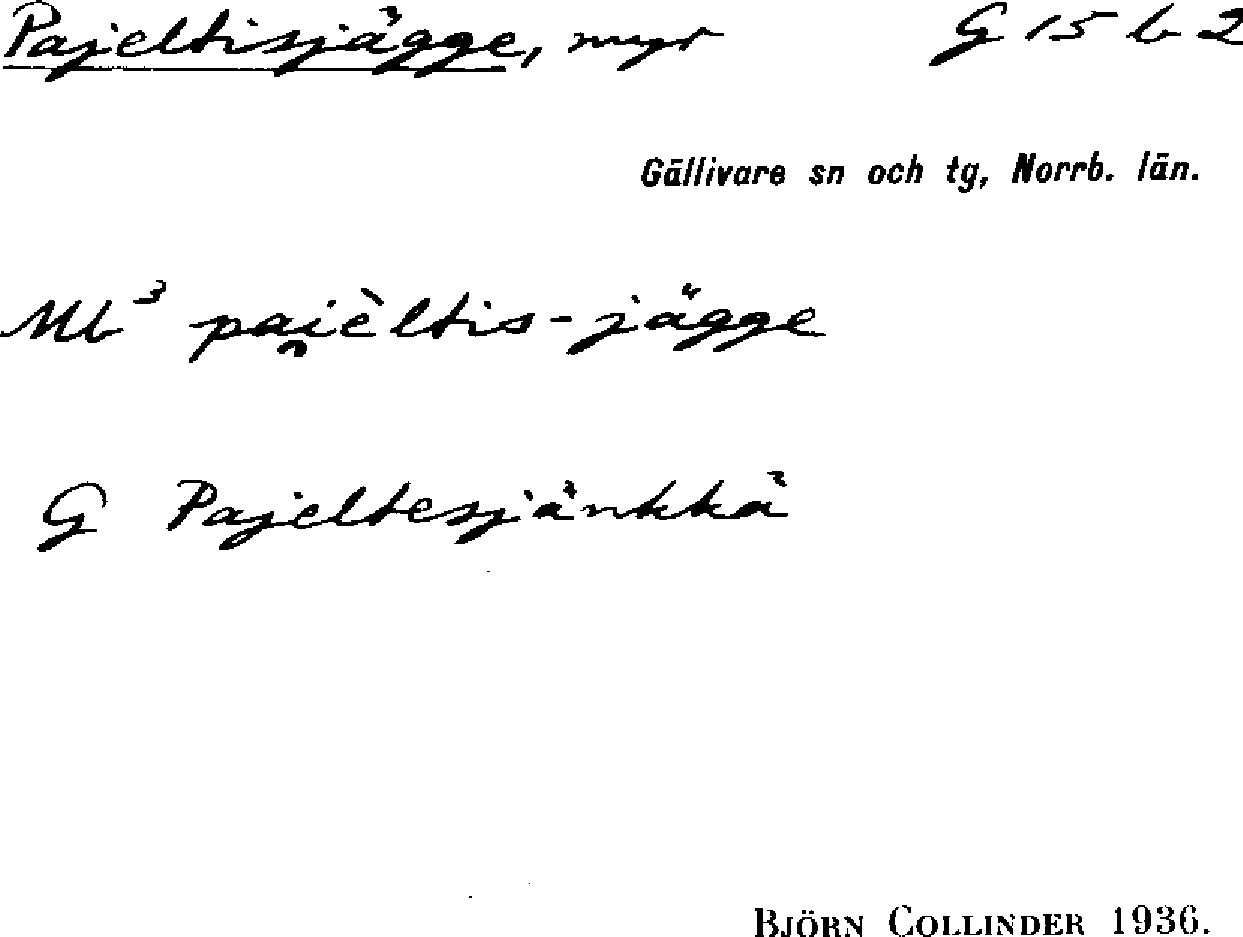 Pajeltisjägge, myr G 15 b 2
Gällivare sn och tg, Norrb. län.
Mb³ pai̯èltis-jägge
G Pajeltesjänkkä
BJÖRN COLLINDER 1936.